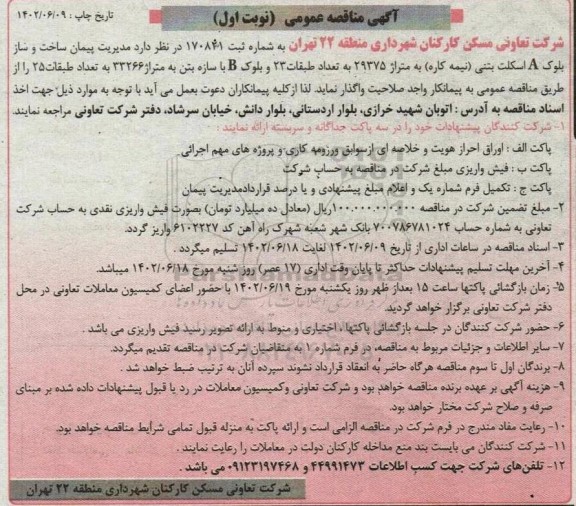 آگهی مناقصه عمومی (نوبت اول)
تاریخ چاپ : ۱۴۰۲/۰۶/۰۹
شرکت تعاونی مسکن کارکنان شهرداری منطقه ۲۲ تهران به شماره ثبت ۱۷۰۸۴۱ در نظر دارد مدیریت پیمان ساخت و ساز
بلوک A اسکلت بتنی (نیمه کاره) به متراژ ۲۹۳۷۵ به تعداد طبقات۲۳ و بلوک B با سازه بتن به متراژ۳۳۲۶۶ به تعداد طبقات۲۵ را از
طریق مناقصه عمومی به پیمانکار واجد صلاحیت واگذار نماید. لذا ازکلیه پیمانکاران دعوت بعمل می آید با توجه به موارد ذیل جهت اخذ
اسناد مناقصه به آدرس : اتوبان شهید خرازی، بلوار اردستانی، بلوار دانش، خیابان سرشاد، دفتر شرکت تعاونی مراجعه نمایند.
۱- شرکت کنندگان پیشنهادات خود را در سه پاکت جداگانه و سربسته ارائه نمایند :
پاکت الف : اوراق احراز هویت و خلاصه ای ازسوابق ورزومه کاری و پروژه های مهم اجرائی
پاکت ب : فیش واریزی مبلغ شرکت در مناقصه به حساب شرکت
پاکت ج : تکمیل فرم شماره یک و اعلام مبلغ پیشنهادی و یا درصد قراردادمدیریت پیمان
۲- مبلغ تضمین شرکت در مناقصه ۱۰۰.۰۰۰.۰۰۰.۰۰۰ریال (معادل ده میلیارد تومان) بصورت فیش واریزی نقدی به حساب شرکت
تعاونی به شماره حساب ۷۰۰۷۸۶۷۸۱۰۲۴ بانک شهر شعبه شهرک راه آهن کد ۶۱۰۲۲۲۷ واریز گردد.
۳- اسناد مناقصه در ساعات اداری از تاریخ ۱۴۰۲/۰۶/۰۹ لغایت ۱۴۰۲/۰۶/۱۸ تسلیم میگردد .
۴- آخرین مهلت تسلیم پیشنهادات حداکثر تا پایان وقت اداری (۱۷ عصر) روز شنبه مورخ ۱۴۰۲/۰۶/۱۸ میباشد.
۵- زمان بازگشائی پاکتها ساعت ۱۵ بعداز ظهر روز یکشنبه مورخ ۱۴۰۲/۰۶/۱۹ با حضور اعضای کمیسیون معاملات تعاونی در محل
دفتر شرکت تعاونی برگزار خواهد گردید.
۶- حضور شرکت کنندگان در جلسه بازگشائی پاکتها ، اختیاری و منوط به ارائه تصویر رسید فیش واریزی می باشد .
۷- سایر اطلاعات و جزئیات مربوط به مناقصه، در فرم شماره ۱ به متقاضیان شرکت در مناقصه تقدیم میگردد.
۸- برندگان اول تا سوم مناقصه هرگاه حاضر به انعقاد قرارداد نشوند سپرده آنان به ترتیب ضبط خواهد شد .
۹- هزینه آگهی بر عهده برنده مناقصه خواهد بود و شرکت تعاونی وکمیسیون معاملات در رد یا قبول پیشنهادات داده شده بر مبنای
صرفه و صلاح شرکت مختار خواهد بود.
۱۰- رعایت مفاد مندرج در فرم شرکت در مناقصه الزامی است و ارائه پاکت به منزله قبول تمامی شرایط مناقصه خواهد بود.
۱۱- شرکت کنندگان می بایست بند منع مداخله کارکنان دولت در معاملات را رعایت نمایند .
۱۲- تلفن‌های شرکت جهت کسب اطلاعات ۴۴۹۹۱۴۷۳ و ۰۹۱۲۳۱۹۷۴۶۸ می باشد .
شرکت تعاونی مسکن کارکنان شهرداری منطقه ۲۲ تهران